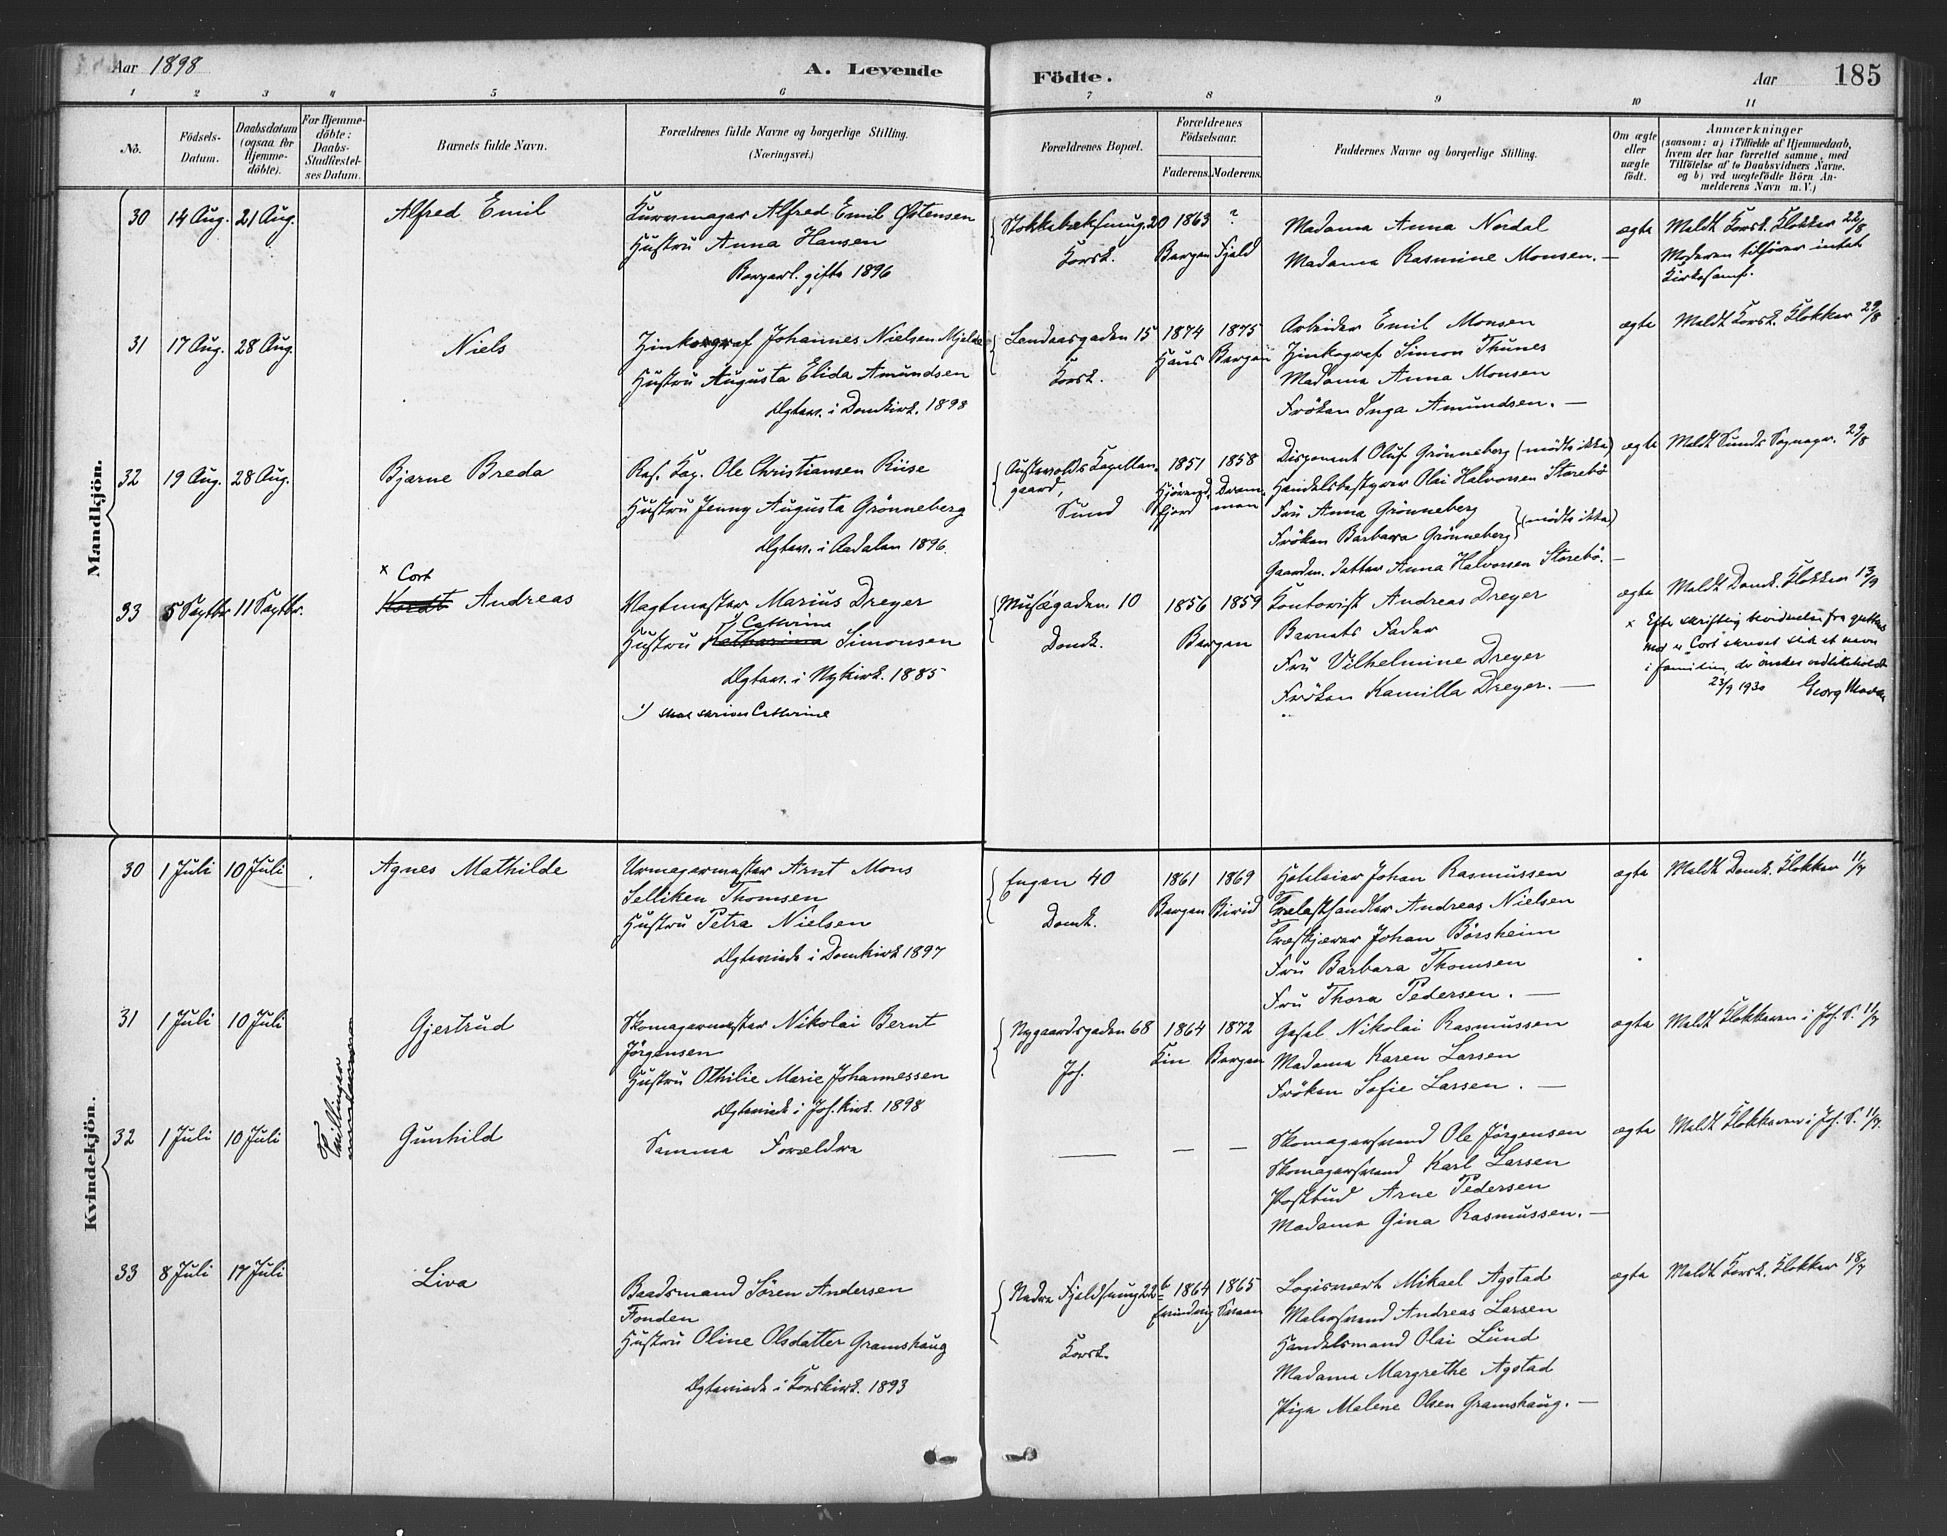 Aar 1898
A. Levende
Födte.
Aar
185
1 2 3 4 5 6 7 8 9 10 11
No.
Födsels-
Datum.
Daabsdatum
(ogsaa for
Hjemme-
döbte).
For Hjemme-
döbte:
Daabs-
Stadfæstel-
ses Datum.
Barnets fulde Navn.
Forældrenes fulde Navne og borgerlige Stilling.
(Næringsvei.)
Forældrenes Bopæl.
Forældrenes
Födselsaar.
Faderens. Moderens.
Faddernes Navne og borgerlige Stilling.
Om ægte
eller
uægte
födt.
Anmærkninger
(saasom: a) i Tilfælde af Hjemmedaab,
hvem der har forrettet samme, med
Tilföielse af to Daabsvidners Navne.
og b) ved uægtefödte Börn An-
melderens Navn m. V.)
Mandkjön.
30 14 Aug. 21 Aug.
Alfred Emil
Kurvmager Alfred Emil Østensen
Hustru Anna Hansen
Borgerl. gifte 1896
Stokkebæksmug. 20
Korsk.
1863 ?
Bergen Fjeld
Madame Anna Nordal
Madame Rasmine Monsen. —
ægte
Meldt Korsk. Klokker 22/8
Moderen tilhører intet
Kirkesamf.
31 17 Aug. 28 Aug.
Niels
Zinkograf Johannes Nielsen Mjelde
Hustru Augusta Elida Amundsen
Ægtev. i Domkirk. 1898
Landaasgaden 15
Korsk.
1874 1875
Haus Bergen
Arbeider Emil Monsen
Zinkograf Simon Thunes
Madame Anna Monsen
Fröken Inga Amundsen. —
ægte
Meldt Korsk. Klokker 29/8
32 19 Aug. 28 Aug.
Bjarne Breda
Res. Kap. Ole Christiansen Riise
Hustru Jenny Augusta Grönneberg
Ægtev. i Aadalen 1896.
Austevolds Kapellan-
gaard,
Sund
1851 1858
Hjörund-
fjord
Dram-
men
Disponent Oluf Grönneberg (mödte ikke)
Handelsbestyrer Olai Halvorsen Storebö
Fru Anna Grönneberg
Fröken Barbara Grönneberg (mödte ikke)
Gaardm. datter Anna Halvorsen Storebö. —
ægte
Meldt Sunds Sognepr. 29/8
33 5 Septbr. 11 Septbr.
x Cort
Kordt Andreas
Vagtmester Marius Dreyer
1) Cathrine
Hustru Katharina Simonsen
Ægtev. i Nykirk. 1885
1) skal skrives Cathrine
Muségaden 10
Domk.
1856 1859
Bergen
Kontorist Andreas Dreyer
Barnets Fader
Fru Vilhelmine Dreyer
Fröken Kamilla Dreyer. —
ægte
Meldt Domk. Klokker 13/9
x Efter skriftlig bevidnelse fra
er "Cort" skrevet slik et navn
i familien, der ønskes vedlikeholdt
23/9 1930 Georg
Kvindekjön.
30 1 Juli 10 Juli
Agnes Mathilde
Urmagermester Arnt Mons
Selliken Thomsen
Hustru Petra Nielsen
Ægteviede i Domkirk 1897
Engen 40
Domk.
1861 1869
Bergen Birid
Hoteleier Johan Rasmussen
Trælasthandler Andreas Nielsen
Træskjærer Johan Börsheim
Fru Barbara Thomsen
Fru Thora Pedersen. —
ægte
Meldt Domk. Klokker 11/7
31 1 Juli 10 Juli
Tvillinger
Gjertrud
Skomagermester Nikolai Bernt
Jörgensen
Hustru Othilie Marie Johannessen
Ægteviede i Joh. kirk. 1898
Nygaardsgaden 68
Joh.
1864 1872
Kin Bergen
Gesel Nikolai Rasmussen
Madame Karen Larsen
Fröken Sofie Larsen. —
ægte
Meldt Klokkeren i Joh. S. 11/7
32 1 Juli 10 Juli
Gunhild
Samme Forældre
— — —
Skomagersvend Ole Jörgensen
Skomagersvend Karl Larsen
Postbud Arne Pedersen
Madame Gina Rasmussen. —
ægte
Meldt Klokkeren i Joh. S. 11/7.
33 8 Juli 17 Juli
Liva
Baadsmand Sören Andersen
Fonden
Hustru Oline Olsdatter Gramshaug
Ægteviede i Korskirk. 1893
Nedre Fjeldsmug 22b
Korsk.
1864 1865
Evindvig
Logisvert Mikael Agstad
Malersvend Andreas Larsen
Handelsmand Olai Lund
Madame Margrethe Agstad
Pige Malene Olsen Gramshaug. —
ægte
Meldt Korsk. Klokker 18/7